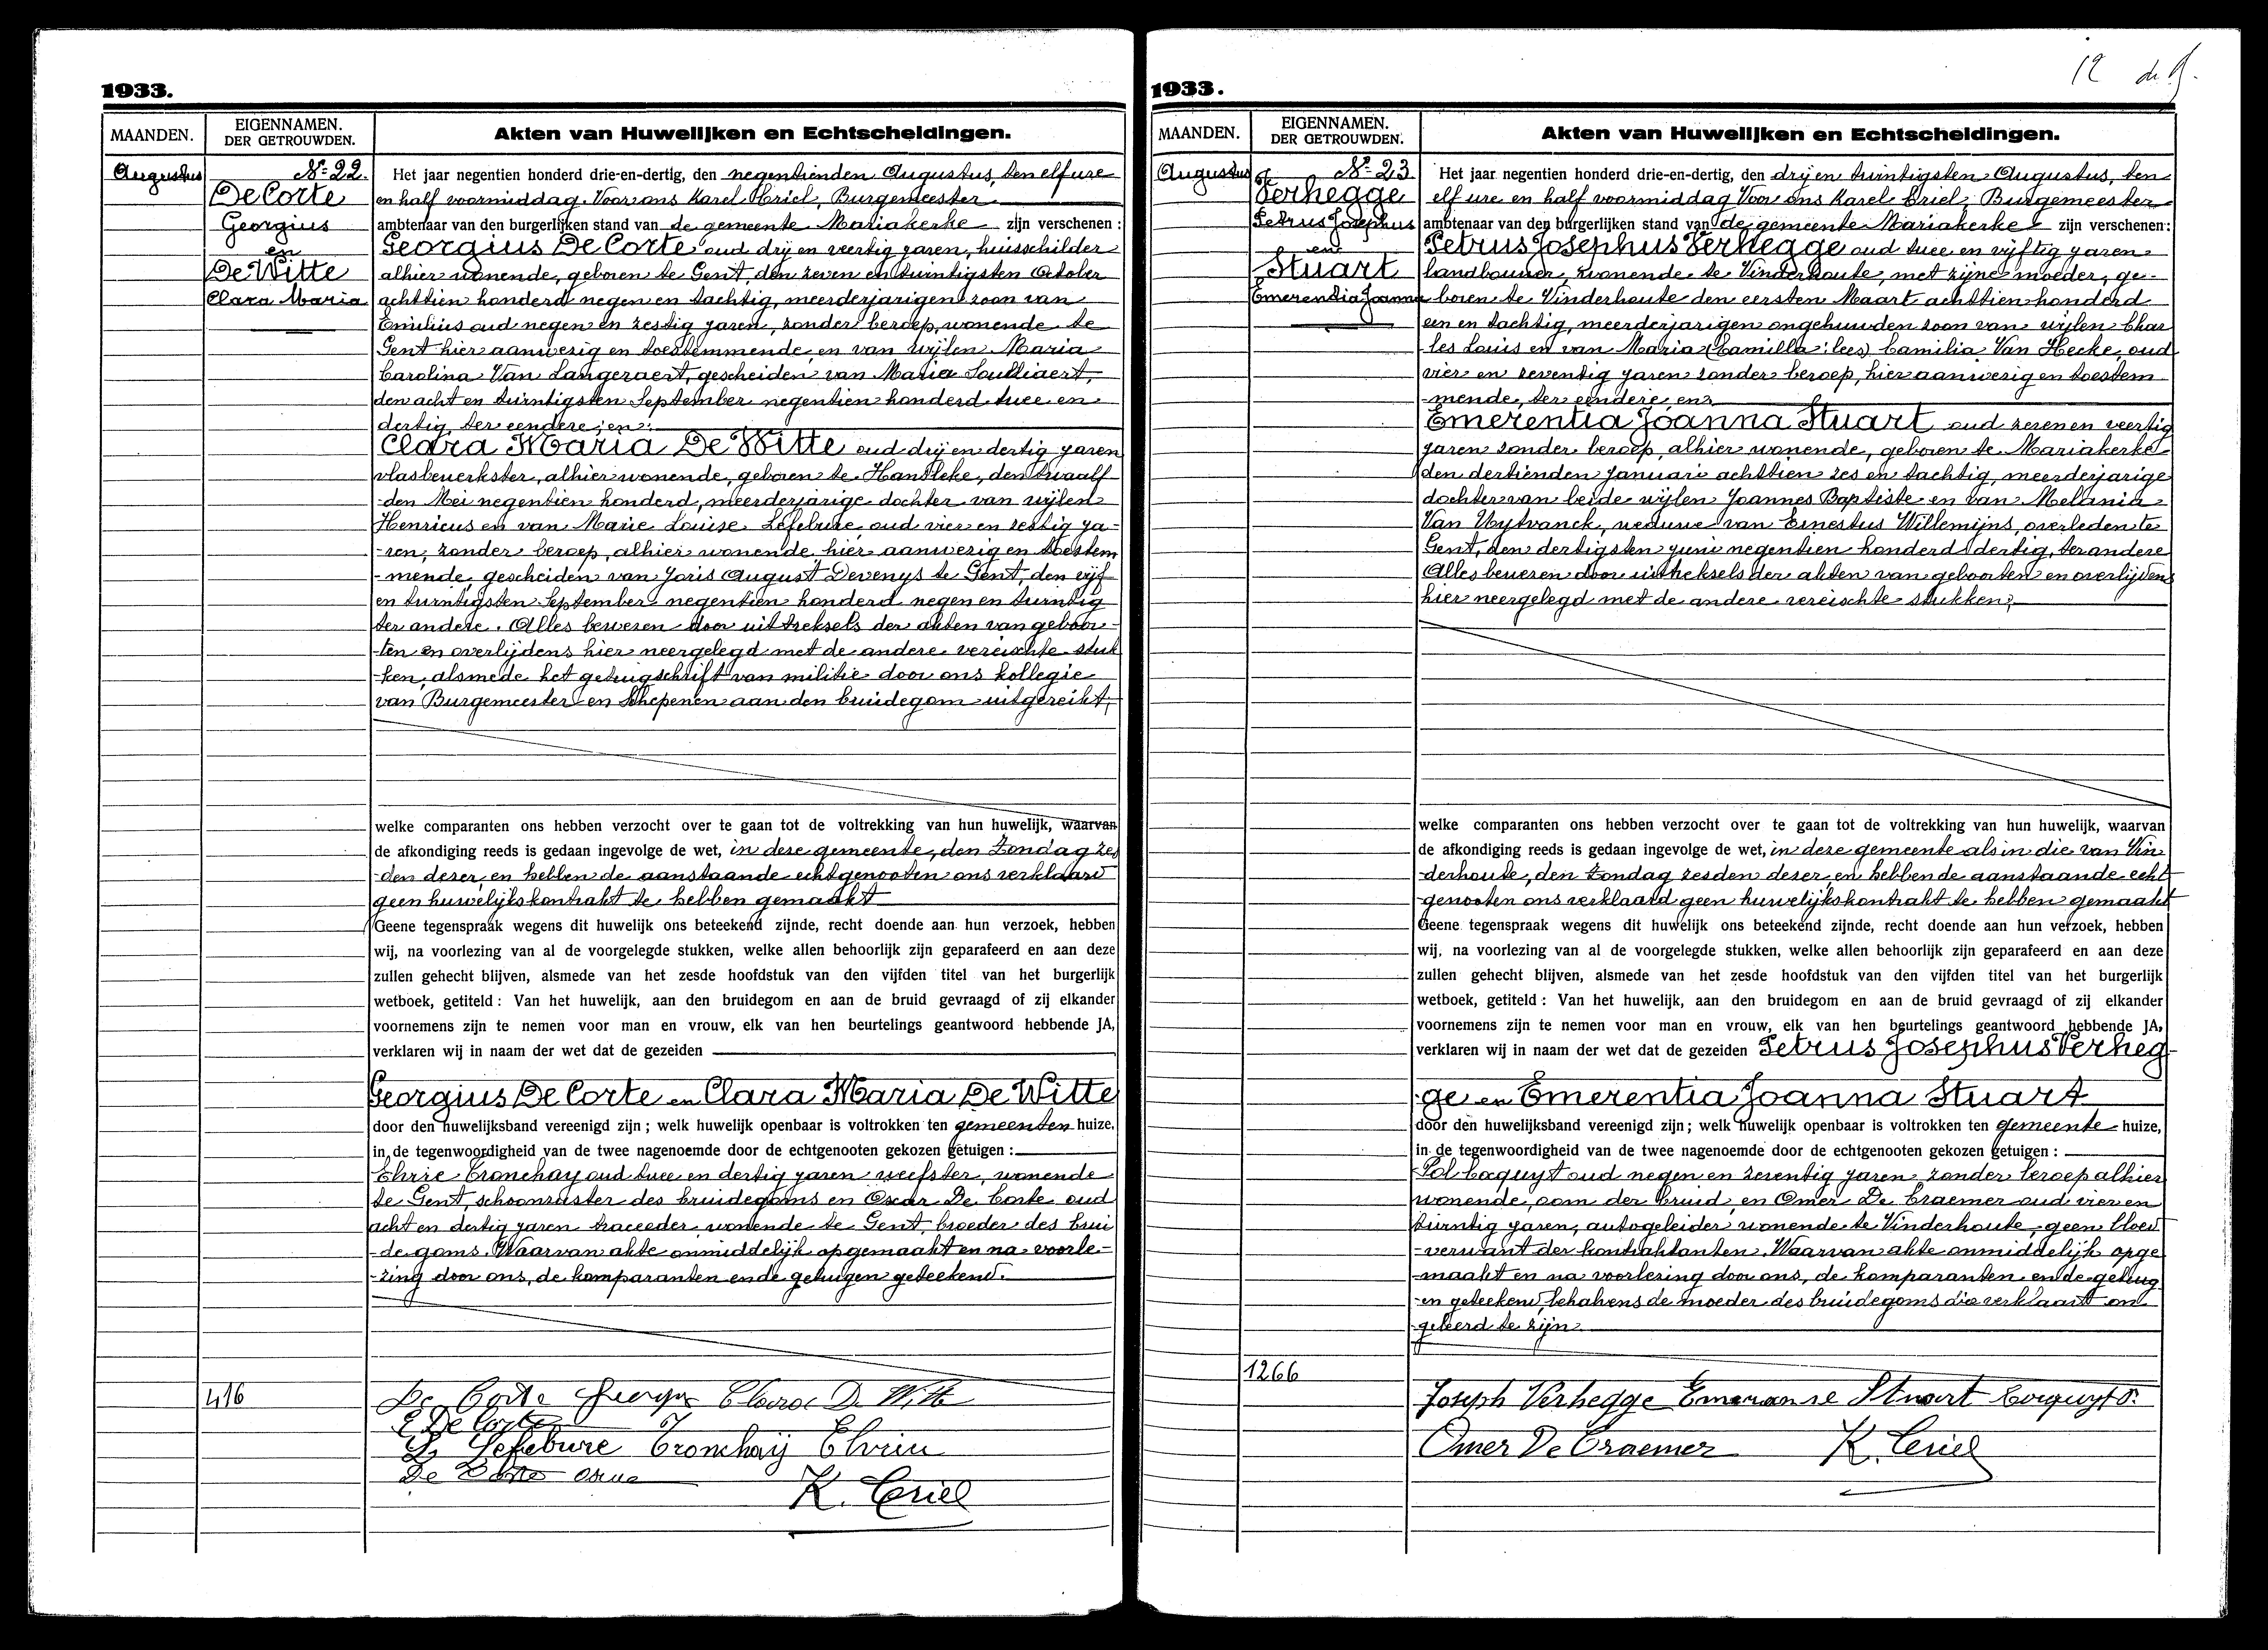 12
1933.
MAANDEN.
EIGENNAMEN.
DER GETROUWDEN.
Akten van Huwelijken en Echtscheidingen.
Augustus
No 22.
De Corte
Georgius
en
De Witte
Clara Maria
Het jaar negentien honderd drie-en-dertig, den negentienden Augustus, ten elf ure
en half voormiddag. Voor ons Karel Criel, Burgemeester
ambtenaar van den burgerlijken stand van de gemeente Mariakerke zijn verschenen :
Georgius De Corte oud drij en veertig jaren, huisschilder
alhier wonende, geboren te Gent, den zeven en twintigsten October
achttien honderd negen en tachtig, meerderjarigen zoon van
Emilius oud negen en zestig jaren, zonder beroep, wonende te
Gent hier aanwezig en toestemmende en van wijlen Maria
Carolina Van Langeraert, gescheiden van Maria
den acht en twintigsten September negentien honderd twee en
dertig, ter eendere; en:
Clara Maria De Witte oud drij en dertig jaren
vlasbewerkster, alhier wonende, geboren te den twaalf
-den Mei negentien honderd, meerderjarige dochter van wijlen
Henricus en van Marie Louise Lefebure oud vier en zestig ja-
-ren, zonder beroep, alhier wonende, hier aanwezig en toestem
-mende, gescheiden van Joris August Devenys te Gent, den vijf
en twintigsten September negentien honderd negen en twintig
ter andere. Alles bewezen door uittreksels der akten van geboor-
-ten en overlijdens hier neergelegd met de andere vereischte stuk
-ken, alsmede het getuigschrift van militie door ons kollegie
van Burgemeester en Schepenen aan den bruidegom uitgereikt,
welke comparanten ons hebben verzocht over te gaan tot de voltrekking van hun huwelijk, waarvan
de afkondiging reeds is gedaan ingevolge de wet, in deze gemeente, den Zondag zes
-den dezer, en hebben de aanstaande echtgenooten ons verklaard
geen huwelijkskontrakt te hebben gemaakt
Geene tegenspraak wegens dit huwelijk ons beteekend zijnde, recht doende aan hun verzoek, hebben
wij, na voorlezing van al de voorgelegde stukken, welke allen behoorlijk zijn geparafeerd en aan deze
zullen gehecht blijven, alsmede van het zesde hoofdstuk van den vijfden titel van het burgerlijk
wetboek, getiteld : Van het huwelijk, aan den bruidegom en aan de bruid gevraagd of zij elkander
voornemens zijn te nemen voor man en vrouw, elk van hen beurtelings geantwoord hebbende JA,
verklaren wij in naam der wet dat de gezeiden
Georgius De Corte en Clara Maria De Witte
door den huwelijksband vereenigd zijn ; welk huwelijk openbaar is voltrokken ten gemeenten huize,
in de tegenwoordigheid van de twee nagenoemde door de echtgenooten gekozen getuigen :
Cronchay oud twee en dertig jaren weefster, wonende
te Gent, schoonzuster des bruidegoms en Oscar De Corte oud
acht en dertig jaren traceeder, wonende te Gent, broeder des brui
-degoms. Waarvan akte onmiddelijk opgemaakt en na voorle-
-zing door ons, de komparanten en de getuigen geteekend.
416
De Corte George Clara De Witte
E De Corte
L. Lefebure Cronchay Elvire
De Corte
K. Criel
1933.
MAANDEN.
EIGENNAMEN.
DER GETROUWDEN.
Akten van Huwelijken en Echtscheidingen.
Augustus
No 23
Verhegge
Petrus Josephus
en
Stuart
Emerentia Joanna
Het jaar negentien honderd drie-en-dertig, den drij en twintigsten Augustus, ten
elf ure en half voormiddag Voor ons Karel Criel, Burgemeester
ambtenaar van den burgerlijken stand van de gemeente Mariakerke zijn verschenen :
Petrus Josephus Verhegge oud twee en vijftig jaren
landbouwer, wonende te Vinderhoute, met zijne moeder, ge-
boren te Vinderhoute den eersten Maart achttien honderd
een en tachtig, meerderjarigen ongehuwden zoon van wijlen Char
-les Louis en van Maria (Camilla : lees) Camilia Van Hecke, oud
vier en zeventig jaren zonder beroep, hier aanwezig en toestem
-mende, ter eendere, en:
Emerentia Joanna Stuart oud zeven en veertig
jaren zonder beroep, alhier wonende, geboren te Mariakerke
den dertienden Januari achttien zes en tachtig, meerderjarige
dochter van beide wijlen Joannes Baptiste en van Melania
Van Uytvanck, weduwe van Ernestus Willemijns, overleden te
Gent, den dertigsten juni negentien honderd dertig, ter andere
Alles bewezen door uittreksels der akten van geboorten en overlijdens
hier neergelegd met de andere vereischte stukken,
welke comparanten ons hebben verzocht over te gaan tot de voltrekking van hun huwelijk, waarvan
de afkondiging reeds is gedaan ingevolge de wet, in deze gemeente als in die van Vin
-derhoute, den Zondag zesden dezer, en hebben de aanstaande echt
-genooten ons verklaard geen huwelijkskontrakt te hebben gemaakt
Geene tegenspraak wegens dit huwelijk ons beteekend zijnde, recht doende aan hun verzoek, hebben
wij, na voorlezing van al de voorgelegde stukken, welke allen behoorlijk zijn geparafeerd en aan deze
zullen gehecht blijven, alsmede van het zesde hoofdstuk van den vijfden titel van het burgerlijk
wetboek, getiteld : Van het huwelijk, aan den bruidegom en aan de bruid gevraagd of zij elkander
voornemens zijn te nemen voor man en vrouw, elk van hen beurtelings geantwoord hebbende JA,
verklaren wij in naam der wet dat de gezeiden Petrus Josephus Verheg-
-ge en Emerentia Joanna Stuart
door den huwelijksband vereenigd zijn ; welk huwelijk openbaar is voltrokken ten gemeente huize,
in de tegenwoordigheid van de twee nagenoemde door de echtgenooten gekozen getuigen :
Coquyt oud negen en zeventig jaren zonder beroep alhier
wonende, oom der bruid, en Omer De Craemer oud vier en
twintig jaren, autogeleider wonende te Vinderhoute, geen bloed
-verwant der kontraktanten. Waarvan akte onmiddelijk opge
-maakt en na voorlezing door ons, de komparanten en de getuig
-en geteekend, behalvens de moeder des bruidegoms die verklaart on
geleerd te zijn
1266
Joseph Verhegge Stuart Coquyt
Omer De Craemer K. Criel